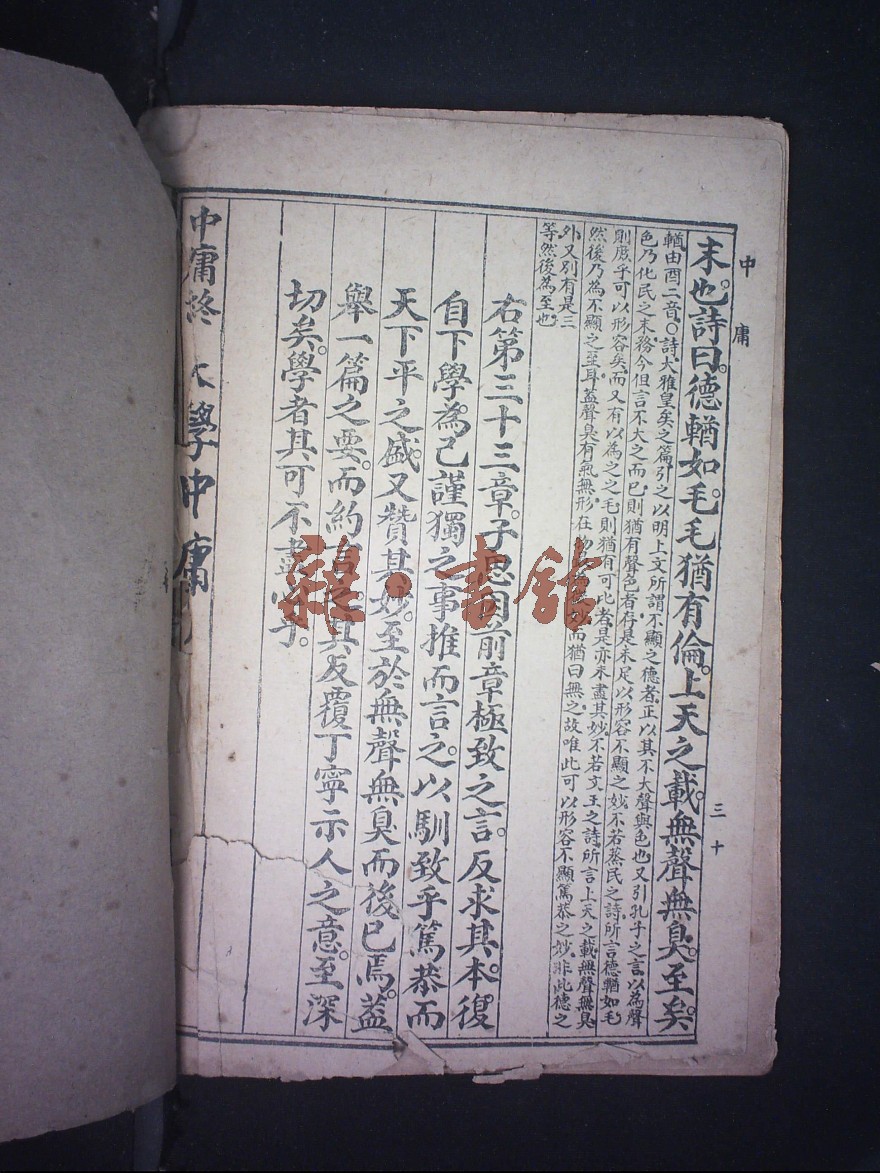 中庸
三十
末也。詩曰。德輶如毛。毛猶有倫。上天之載。無聲無臭。至矣。
輶由酉二音。○詩大雅皇矣之篇引之以明上文所謂不顯之德者正以其不大聲與色也又引孔子之言以為聲
色乃化民之末務今但言不大之而已則猶有聲色者存是未足以形容不顯之妙不若烝民之詩所言德輶如毛
則庶乎可以形容矣而又有以為之毛則猶有可比者是亦未盡其妙不若文王之詩所言上天之載無聲無臭
然後乃為不顯之至耳蓋聲臭有氣無形在物最為微妙而猶曰無之故唯此可以形容不顯篤恭之妙非此德之
外又別有是三
等然後為至也
右第三十三章。子思因前章極致之言。反求其本。復
自下學為己謹獨之事推而言之。以馴致乎篤恭而
天下平之盛。又贊其妙。至於無聲無臭而後已焉。蓋
舉一篇之要。而約言之。其反覆丁寧示人之意。至深
切矣。學者其可不盡心乎。
中庸終 大學中庸
雜·書舘